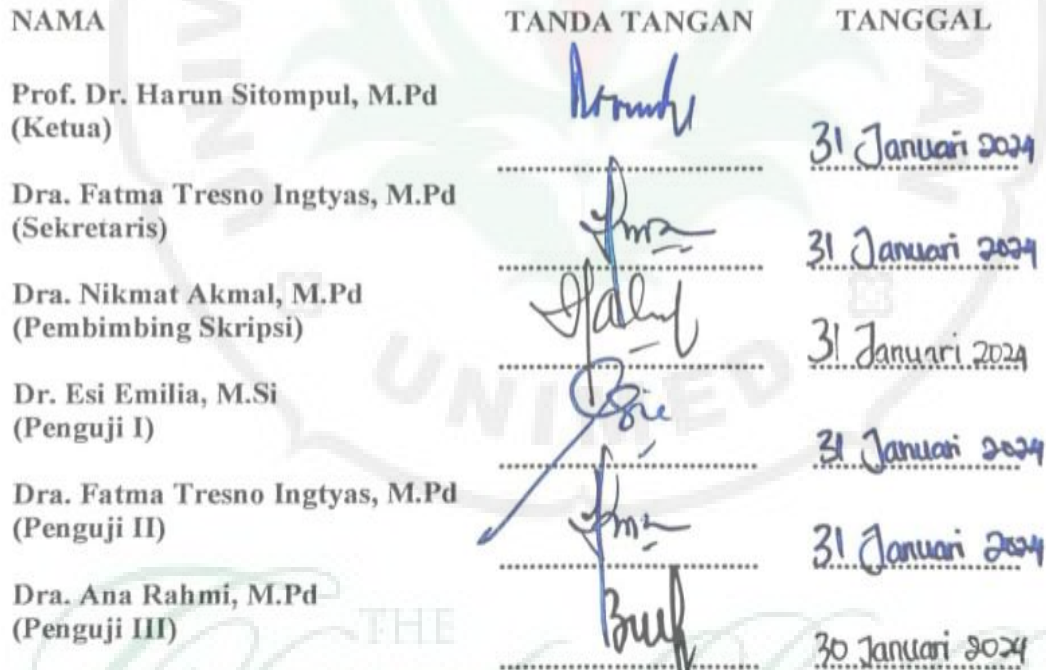 NAMA TANDA TANGAN TANGGAL
Prof. Dr. Harun Sitompul, M.Pd
(Ketua)
31 Januari 2024
Dra. Fatma Tresno Ingtyas, M.Pd
(Sekretaris)
31 Januari 2024
Dra. Nikmat Akmal, M.Pd
(Pembimbing Skripsi)
31 Januari 2024
UNIMED
Dr. Esi Emilia, M.Si
(Penguji I)
31 Januari 2024
Dra. Fatma Tresno Ingtyas, M.Pd
(Penguji II)
31 Januari 2024
Dra. Ana Rahmi, M.Pd
(Penguji III)
THE
30 Januari 2024